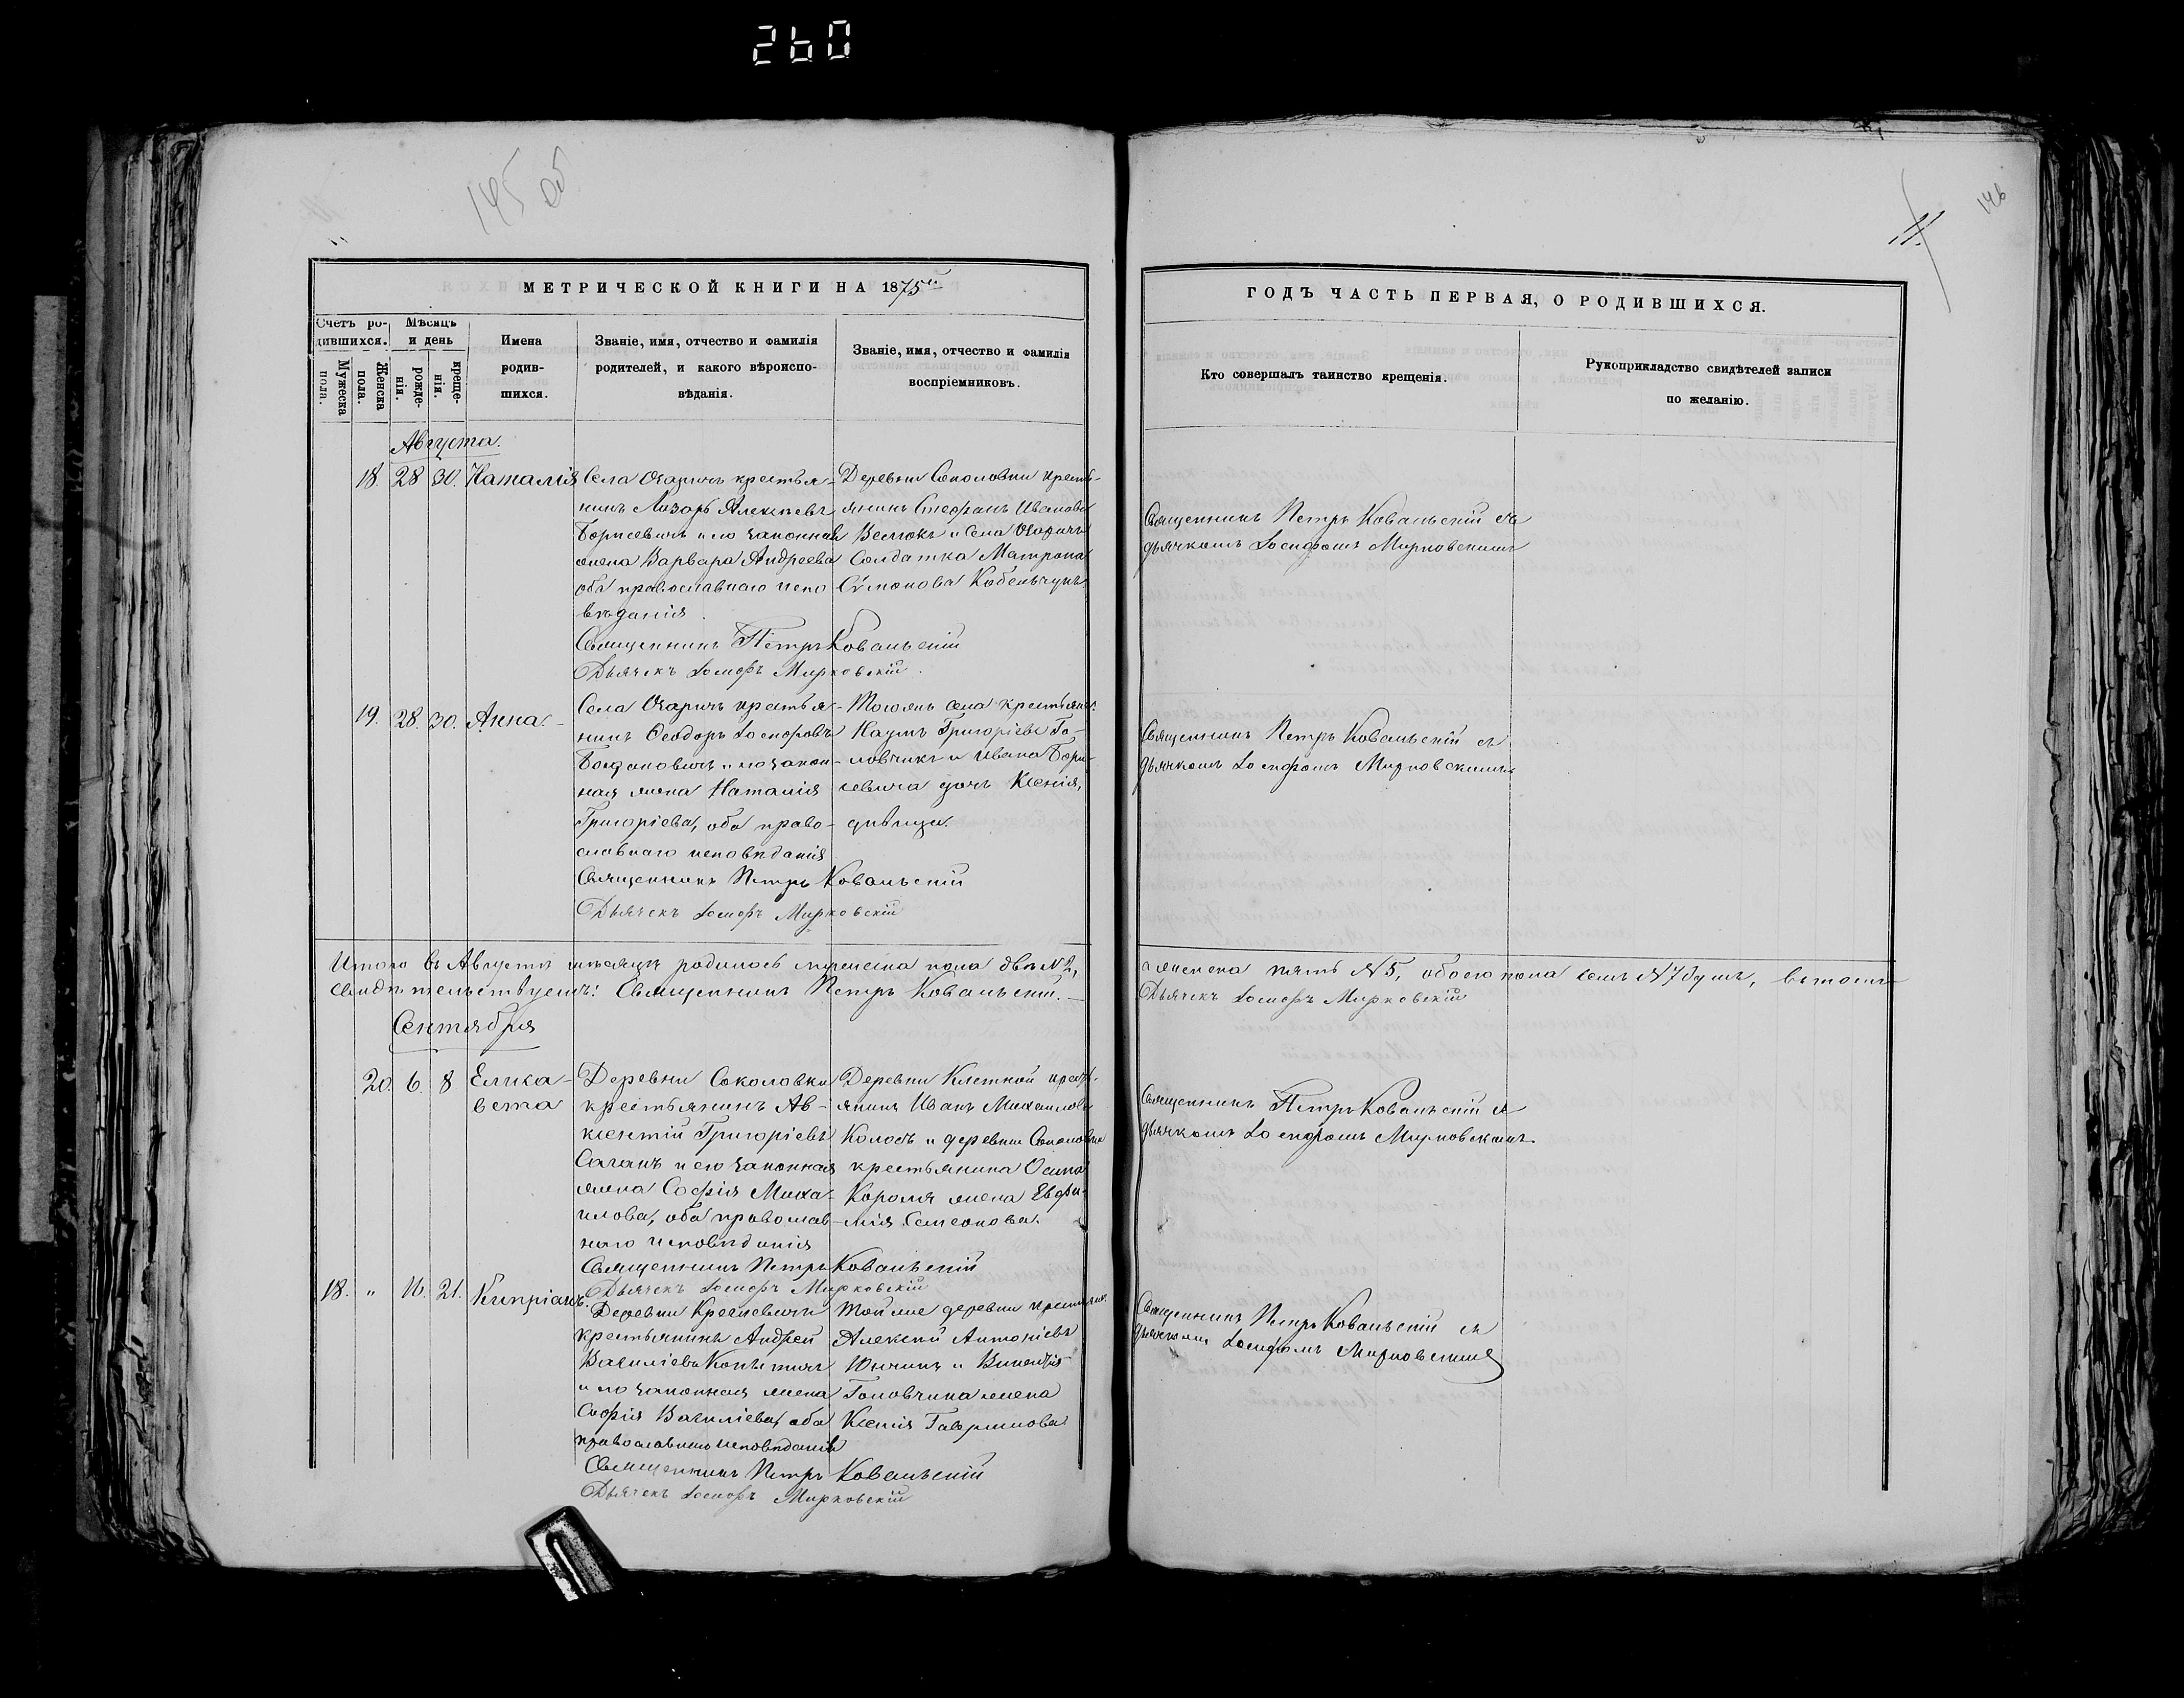 260
145 об
11.
146
МЕТРИЧЕСКОЙ КНИГИ НА 1875й
ГОДЪ ЧАСТЬ ПЕРВАЯ, О РОДИВШИХСЯ.
Счетъ ро-
дившихся.
Мужеска пола.
Женска пола.
Мѣсяцъ
и день
рожде-
нія.
креще-
нія.
Имена
родив-
шихся.
Званіе, имя, отчество и фамилія
родителей, и какого вѣроиспо-
вѣданія.
Званіе, имя, отчество и фамилія
воспріемниковъ.
Кто совершалъ таинство крещенія.
Рукоприкладство свидѣтелей записи
по желанію.
Августа.
18. 28 30. Наталія
Села Озаричъ крестья-
нинъ Лазарь Алексѣевъ
Борисевичъ и его законная
жена Варвара Андреева
оба православнаго испо
вѣданія
Священникъ Петръ Ковальскій
Дьячекъ Іосифъ Мирковскій.
Деревни Соколовки кресть-
янинъ Стефанъ Ивановъ
и Села Озаричъ
Солдатка Матрона
Сѵмонова
Священникъ Петръ Ковальскій съ
дьячкомъ Іосифомъ Мирковскимъ
19. 28. 30. Анна.
Села Озаричъ крестья-
нинъ Ѳеодоръ Іосифовъ
Богдановичъ и его закон-
ная жена Наталія
Григоріева, оба право-
славнаго исповѣданія
Священникъ Петръ Ковальскій
Дьячекъ Іосифъ Мирковскій
Тогожъ села крестьянинъ
Наумъ Григоріевъ Го-
ловчикъ и Ивана Бори-
севича дочь Ксенія,
дѣвица.
Священникъ Петръ Ковальскій съ
дьячкомъ Іосифомъ Мирковскимъ
Итого въ Августѣ мѣсяцѣ родилось мужеска пола два №2,
женска пять №5, обоего пола семь №7 душъ, въ томъ
свидѣтельствуемъ: Священникъ Петръ Ковальскій.
Дьячекъ Іосифъ Мирковскій
Сентября
20. 6. 8 Елиса-
вета
Деревни Соколовки
крестьянинъ Ав-
ксентій Григоріевъ
Саганъ и его законная
жена Софія Миха-
илова, оба православ-
наго исповѣданія
Священникъ Петръ Ковальскій
Дьячекъ Іосифъ Мирковскій
Деревни Клетной крест-
янинъ Иванъ Михаиловъ
и деревни Соколовки
крестьянина Осипа
Короля жена Евфи-
мія Семеонова.
Священникъ Петръ Ковальскій съ
дьячкомъ Іосифомъ Мирковскимъ.
18. " 16. 21. Кипріанъ.
Деревни
крестьянинъ Андрей
Василіевъ
и его законная жена
Софія Василіева, оба
православнаго исповѣданія
Священникъ Петръ Ковальскій
Дьячекъ Іосифъ Мирковскій
Той же деревни крестьянинъ
Алексій Антоніевъ
и Викентія
Головчика жена
Ксенія Гавриилова
Священникъ Петръ Ковальскій съ
дьячкомъ Іосифомъ Мирковскимъ